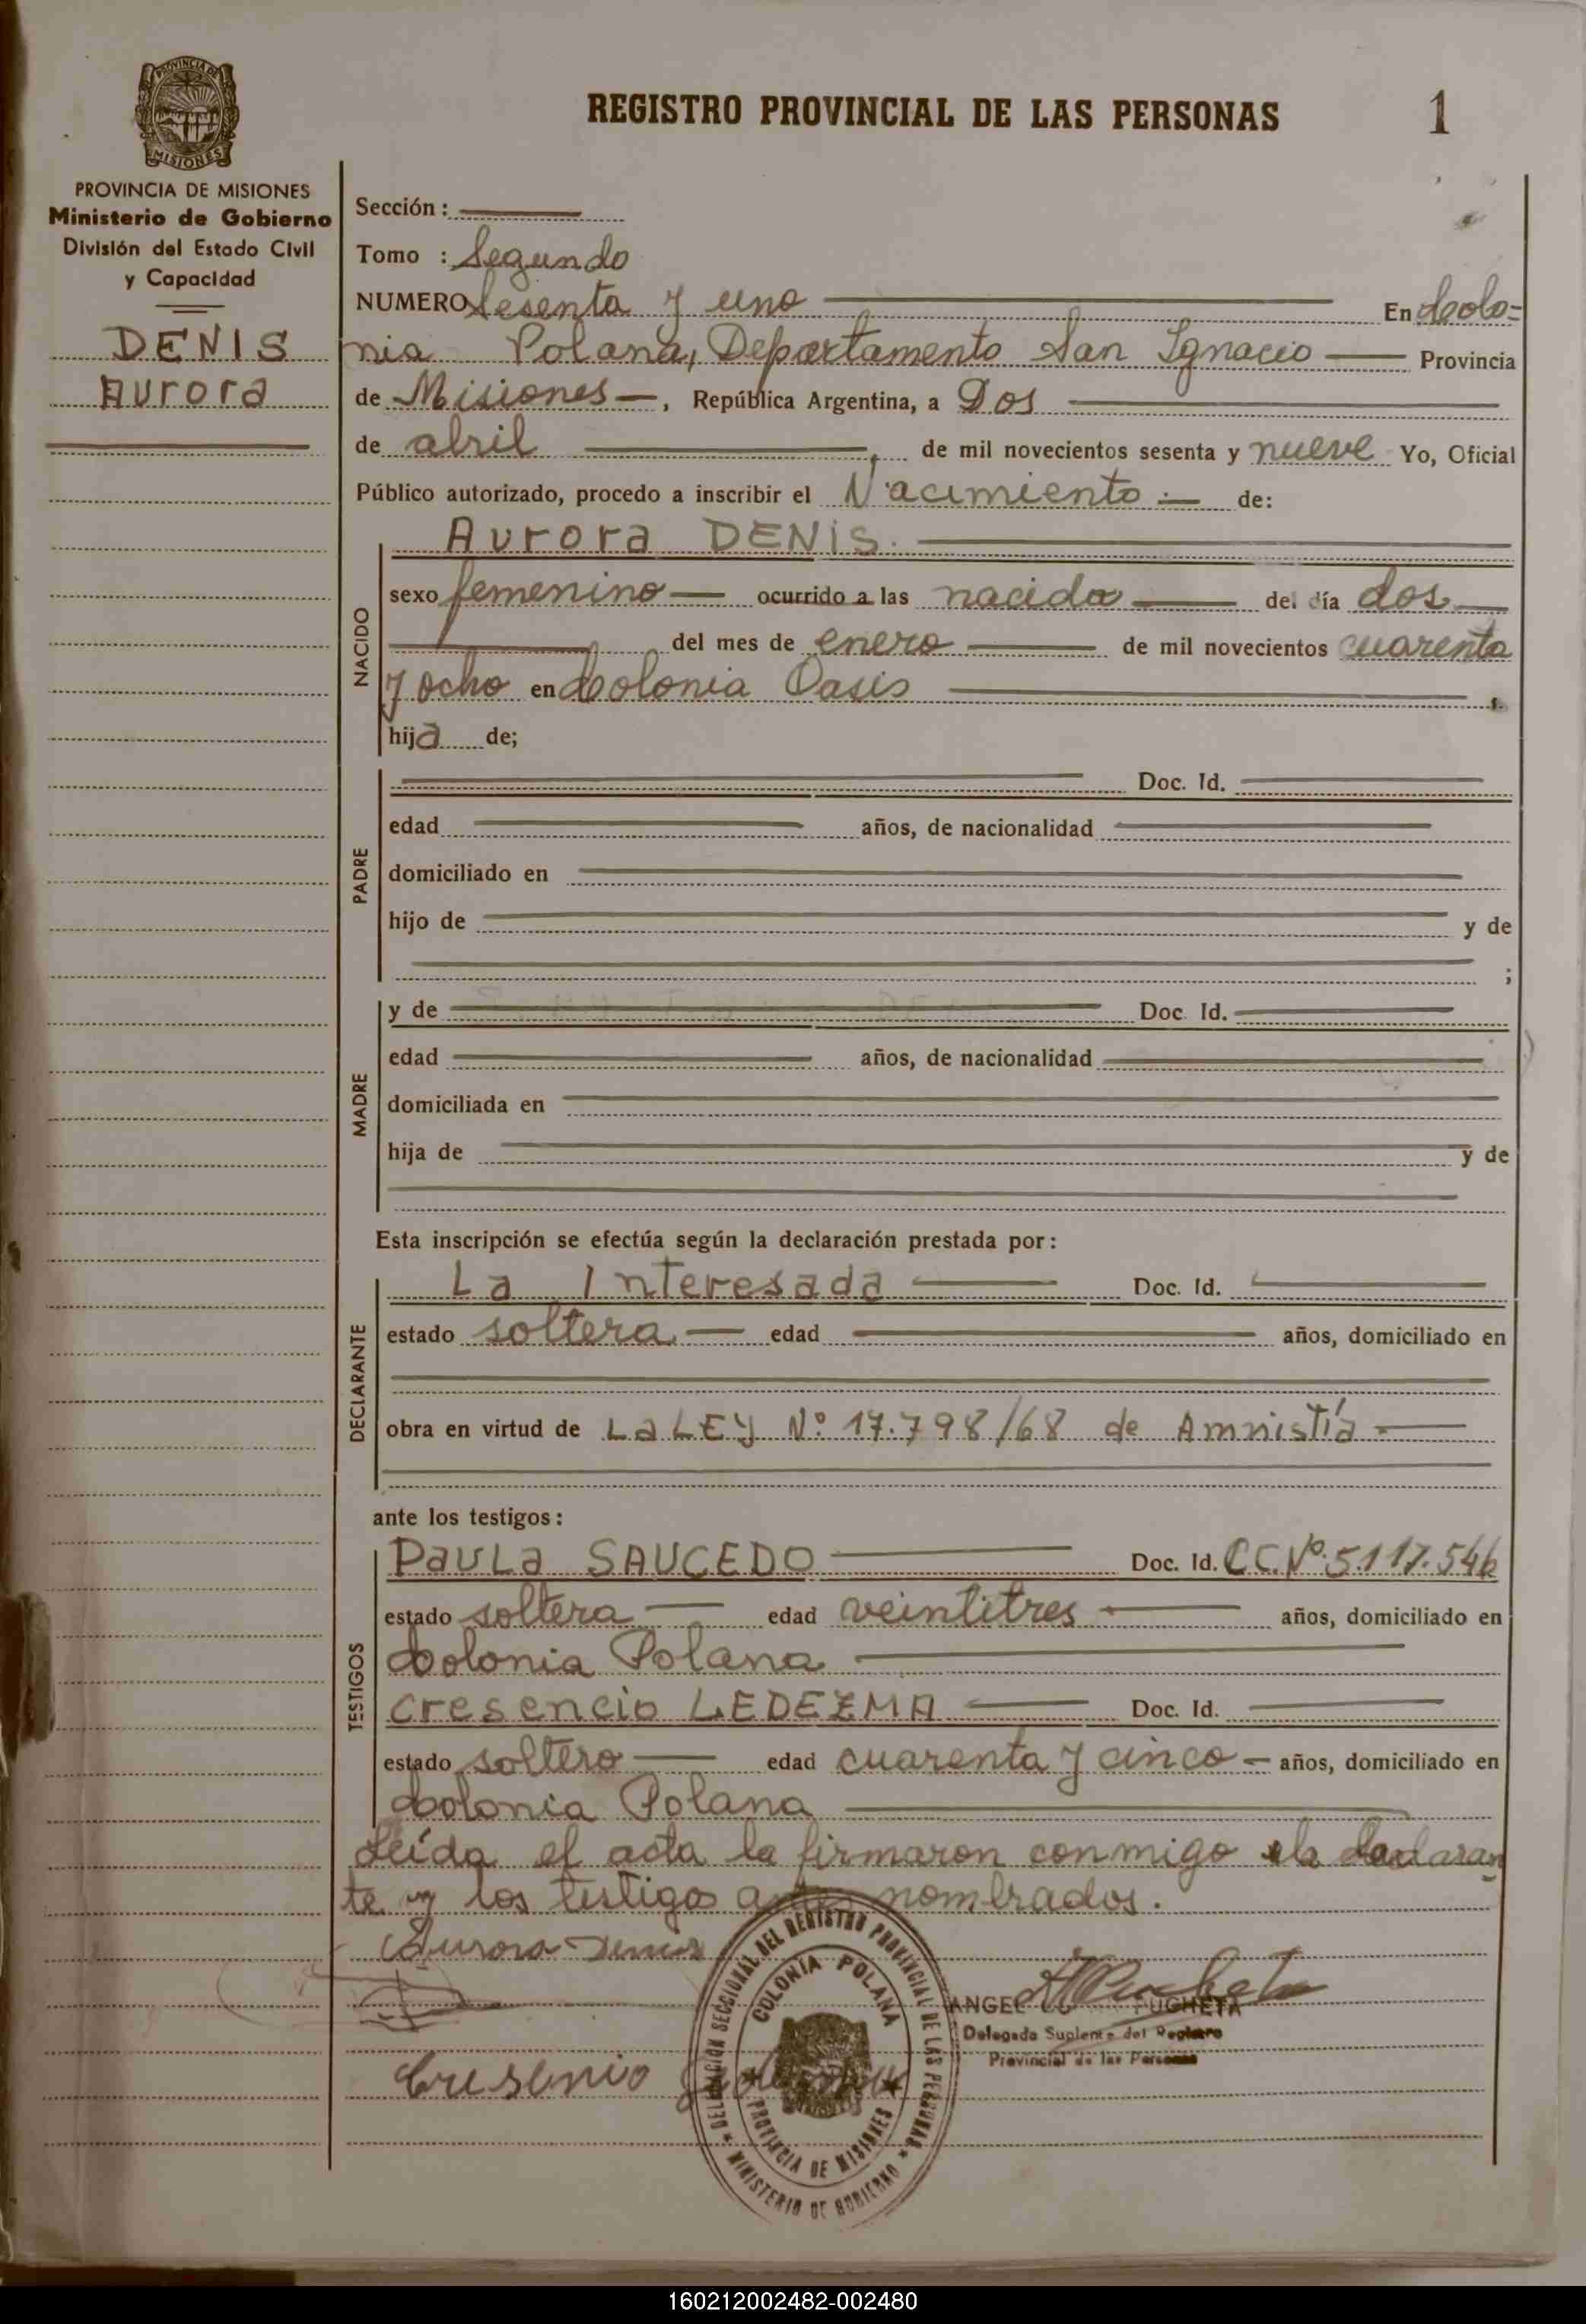 PROVINCIA DE
MISIONES
PROVINCIA DE MISIONES
Ministerio de Gobierno
División del Estado Civil
y Capacidad
DENIS
Aurora
REGISTRO PROVINCIAL DE LAS PERSONAS
1
Sección :
Tomo : Segundo
NUMERO Sesenta y uno En Colo=
nia Polana, Departamento San Ignacio Provincia
de Misiones, República Argentina, a Dos
de abril de mil novecientos sesenta y nueve Yo, Oficial
Público autorizado, procedo a inscribir el Nacimiento de:
NACIDO
Aurora DENIS.
sexo femenino ocurrido a las nacida del día dos
del mes de enero de mil novecientos cuarenta
y ocho en Colonia Oasis
hija de;
PADRE
Doc. Id.
edad años, de nacionalidad
domiciliado en
hijo de y de
;
MADRE
y de Doc. Id.
edad años, de nacionalidad
domiciliada en
hija de y de
Esta inscripción se efectúa según la declaración prestada por:
DECLARANTE
La Interesada Doc. Id.
estado soltera edad años, domiciliado en
obra en virtud de La LEY Nº 17.798/68 de Amnistía
ante los testigos:
TESTIGOS
Paula SAUCEDO Doc. Id. C.C.Nº.5.117.546
estado soltera edad veintitres años, domiciliado en
Colonia Polana
Cresencio LEDEZMA Doc. Id.
estado soltero edad cuarenta y cinco años, domiciliado en
Colonia Polana
Leída el acta la firmaron conmigo la declaran
te y los testigos antes nombrados.
Aurora Denis
ANGEL PUGHETA
Delegado Suplente del Registro
Provincial de las Personas
Cresencio
DELEGACION SECCIONAL DEL REGISTRO PROVINCIAL DE LAS PERSONAS
COLONIA POLANA
PROVINCIA DE MISIONES
MINISTERIO DE GOBIERNO
160212002482-002480